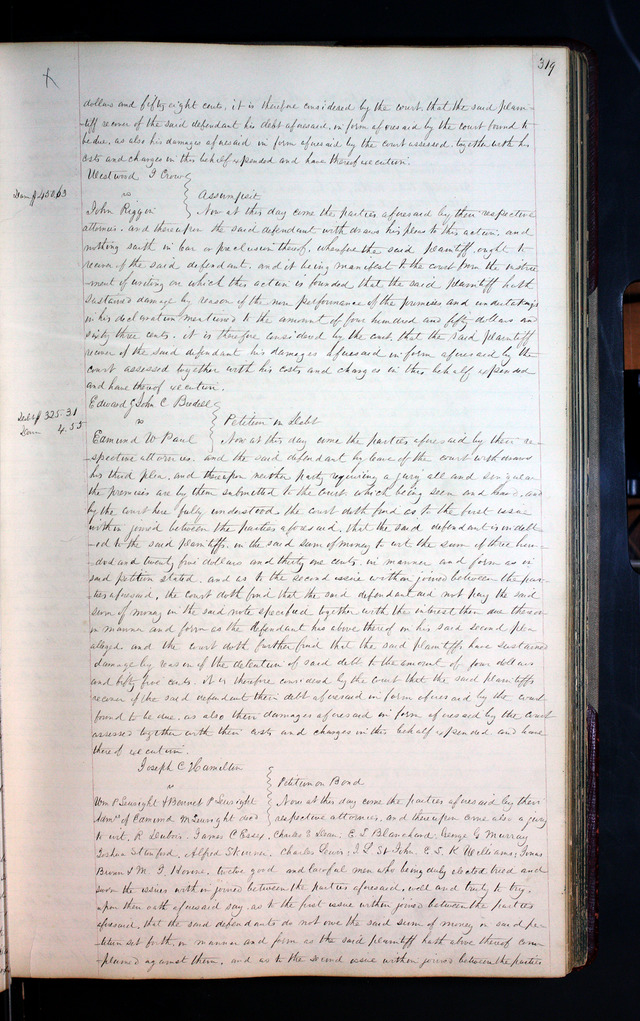 319
dollars and fifty eight cents, it is therefore considered by the court, that the said plain-
-tiff recover of the said defendant his debt aforesaid, in form aforesaid by the court found to
be due, as also his damages aforesaid in form aforesaid by the court assessed, together with his
costs and charges in this behalf expended and have thereof execution.
Westwood J Crow
vs Assumpsit
Dam $450.63
John Riggin Now at this day come the parties aforesaid by their respective
attornies, and thereupon the said defendant with draws his pleas to this action, and
nothing saith in bar or preclusion thereof, wherefore the said plaintiff ought to
recover of the said defendant, and it being manifest to the court from the instru-
ment of writing on which this action is founded that the said plaintiff hath
sustained damage by reason of the non performance of the promises and undertakings
in his declaration mentioned to the amount of four hundred and fifty dollars and
sixty three cents. it is therefore considered by the court that the said plaintiff
recover of the said defendant his damages aforesaid in form aforesaid by the
court assessed together with his costs and charges in this behalf expended
and have thereof execution.
Edward & John C Bredell
vs Petition in Debt
Debt $325.31
Dam 4.55
Edmund W Paul Now at this day come the parties aforesaid by their re-
-spective attornies, and the said defendant by leave of the court withdraws
his third plea, and thereupon neither party requiring a jury all and singular
the premises are by them submitted to the court which being seen and heard, and
by the court here fully understood, the court doth find as to the first issue
within joined between the parties aforesaid, that the said defendant is indebt-
-ed to the said plaintiffs, in the said sum of money to wit the sum of three hun-
-dred and twenty five dollars and thirty one cents, in manner and form as in
said petition stated, and as to the second issue within joined between the par-
-ties aforesaid, the court doth find that the said defendant did not pay the said
sum of money in the said note specified together with the interest then due thereon
in manner and form as the defendant has above thereof in his said second plea
alleged. and the court doth further find that the said plaintiffs have sustained
damage by reason of the detention of said debt to the amount of four dollars
and fifty five cents. it is therefore considered by the court that the said plaintiffs
recover of the said defendant their debt aforesaid in form aforesaid by the court
found to be due, as also their damages aforesaid in form aforesaid by the court
assessed together with their costs and charges in this behalf expended and have
thereof execution.
Joseph C Hamilton
vs Petition on Bond
Wm P Sevright & Bennet P Sevright Now at this day come the parties aforesaid by their
Admrs of Edmund M Sevright decd respective attornies, and thereupon came also a jury
to wit, R James C Essex, Charles G Dean, E S Blanchard, George G Murray
Joshua Stanford, Alfred Skinner, Charles Lewis, J L St John, E S K Williams,
Brown & M. J. twelve good and lawful men who being duly elected tried and
sworn the issues within joined between the parties aforesaid, well and truly to try,
upon their oath aforesaid say, as to the first issue within joined between the parties
aforesaid, that the said defendants do not owe the said sum of money in said pe-
-tition set forth, in manner and form as the said plaintiff hath above thereof com-
-plained against them, and as to the second issue within joined between the parties